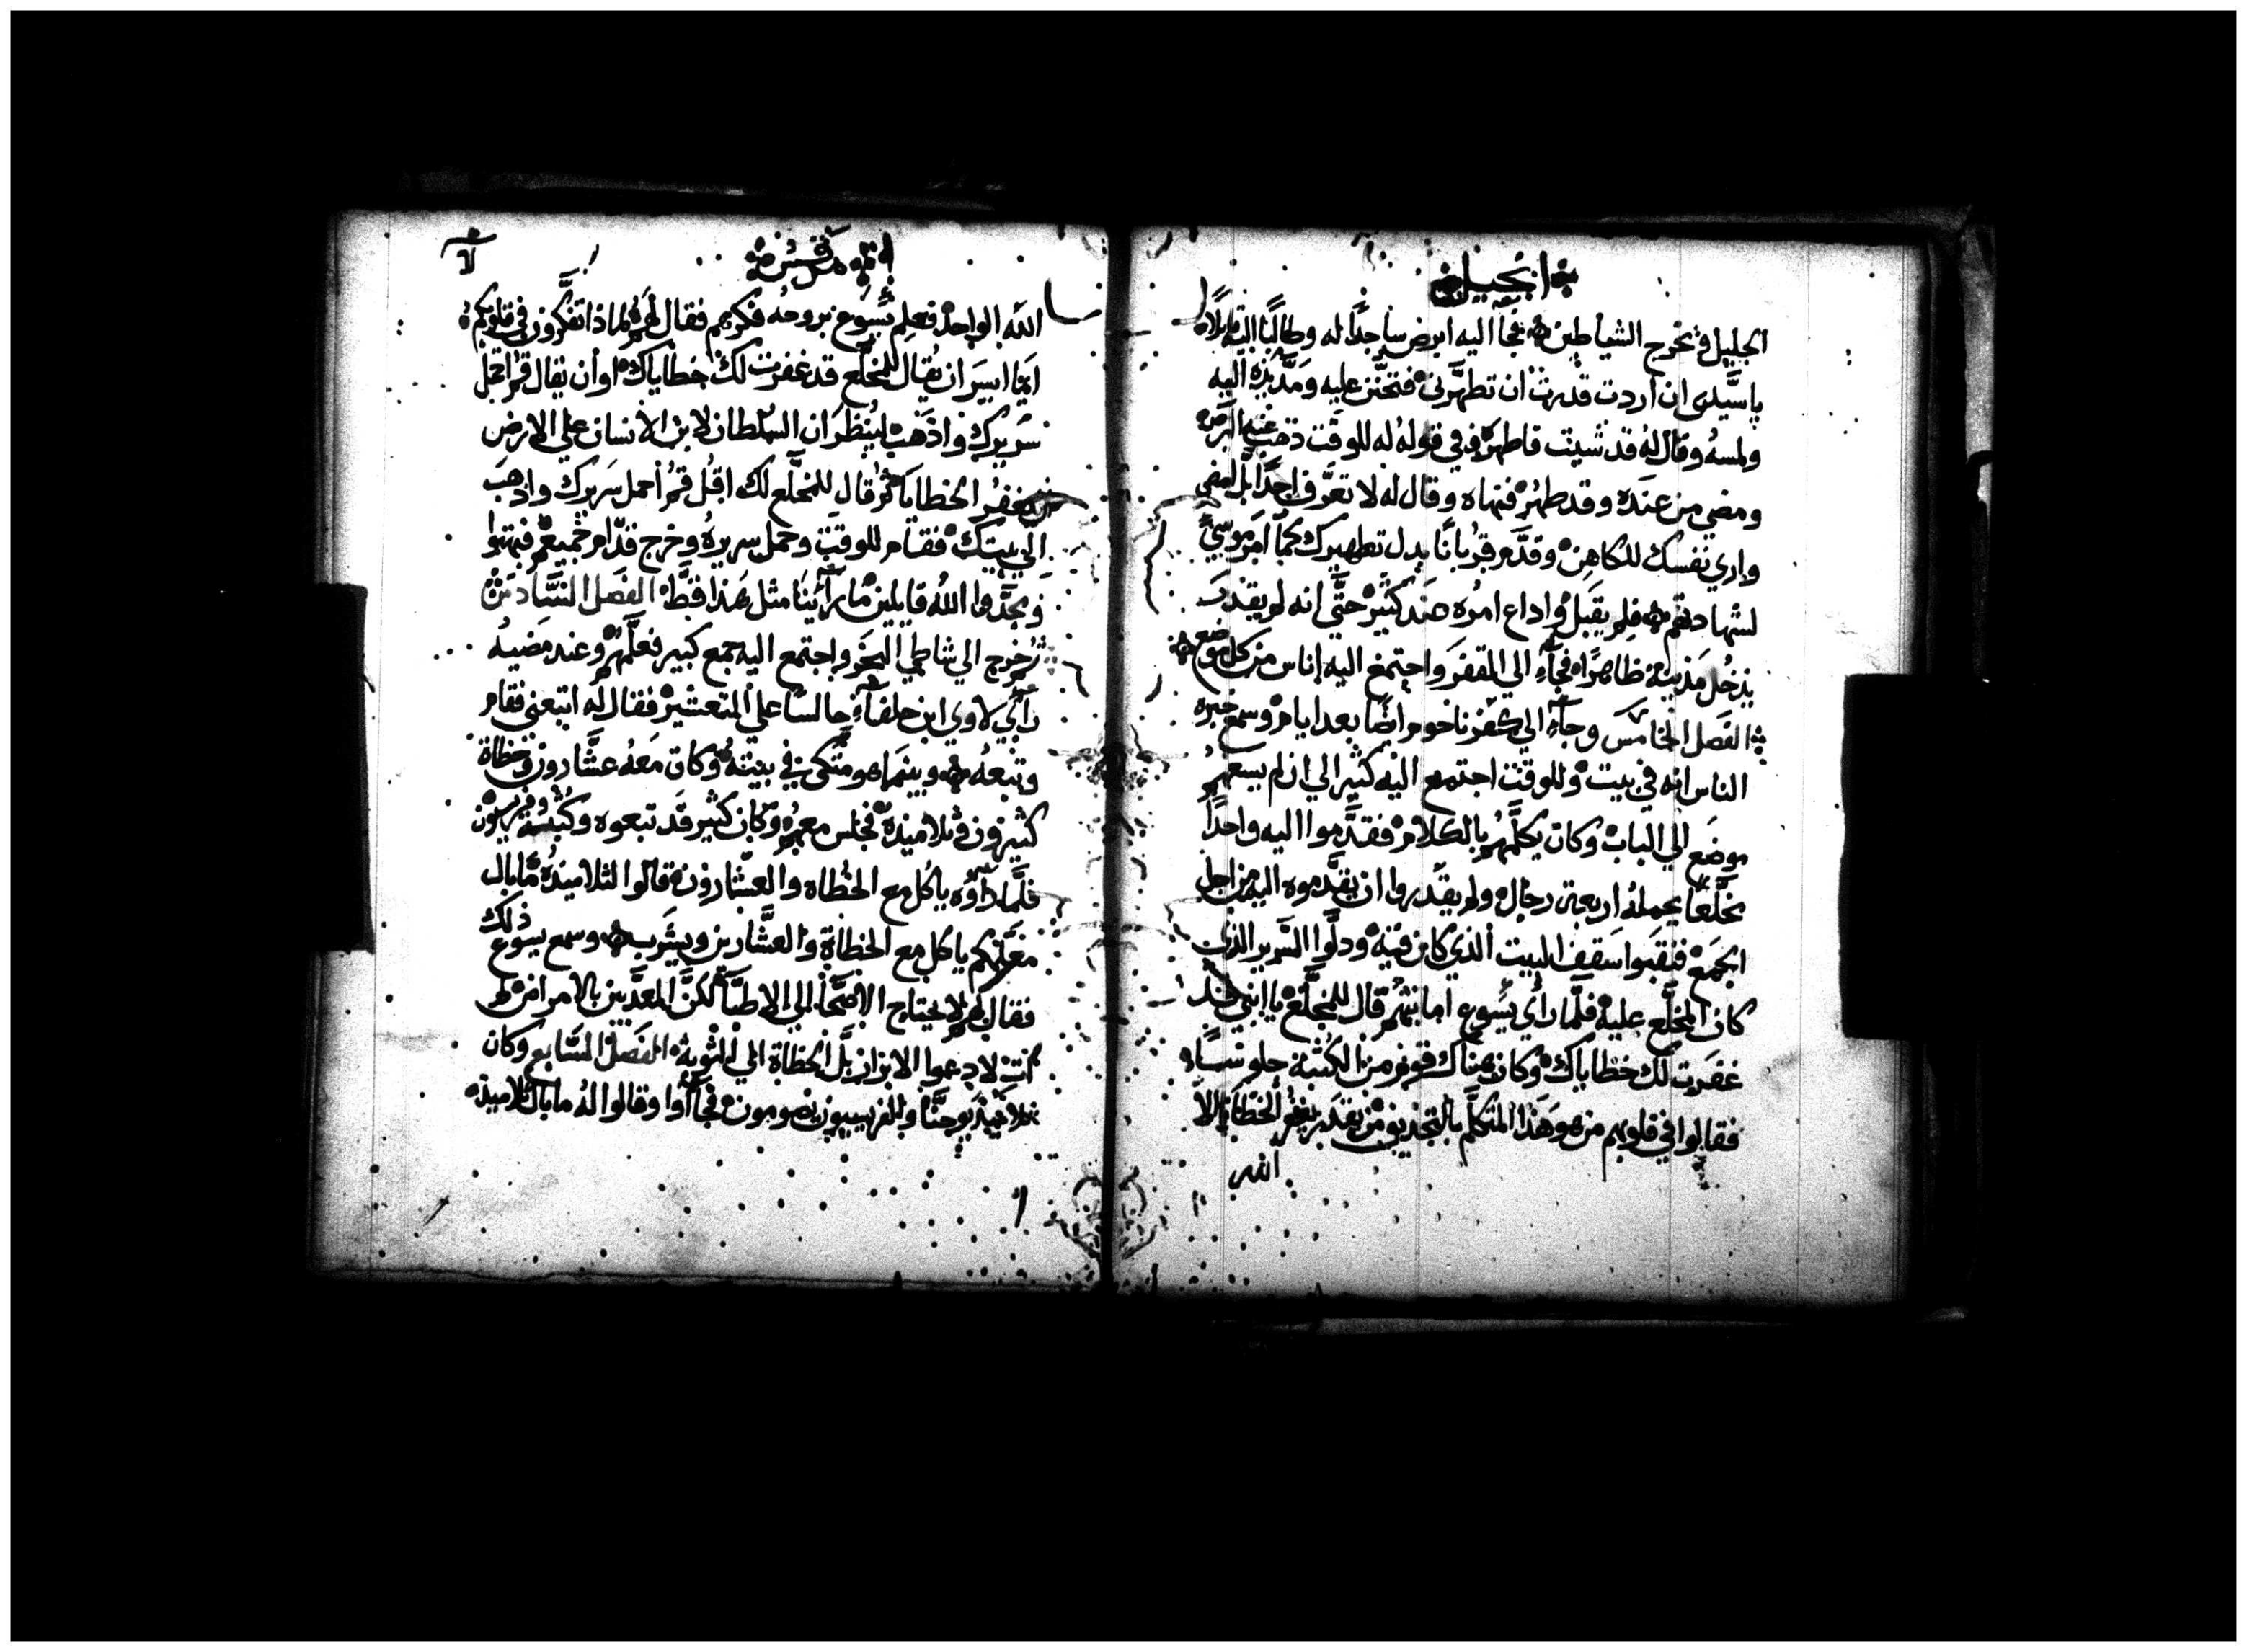 انجيل
الجليل ويخرج الشياطين فجآ اليه ابرص ساجدًا له وطالبًا اليه قايلاً
يا سيّدى ان اردت قدرت ان تطهّرنى فتحنّن عليه ومدّ يده اليه
ولمسهُ وقال لهُ قد شيت فاطهر وفي قوله له للوقت ذهب عنه البرص
ومضي من عنده وقد طهر فنهاه وقال له لا تعرّف احدًا بل امضي
واري نفسك للكاهن وقدّم قربانًا بدل تطهيرك كما امر موسي
لشهادتهم فلم يقبل واداع امره عند كثير حتّى انه لم يقدر
يدخل مدينة ظاهرًا فجآء الي المقفر واجتمع اليه اناس من كل موضع
الفصل الخامس وجآء الي كفرناحوم ايضًا بعد ايام وسمع خبره
الناس انه في بيت وللوقت اجتمع اليه كثير الي ان لم يسعهم
موضع الي الباب وكان يكلّمهم بالكلام فقدّموا اليه واحدًا
مخلّعًا يحمله اربعة رجال ولم يقدروا ان يقدّموه اليه من اجل
الجمع فنقبوا سقف البيت الذي كان فيه ودلّوا السرير الذى
كان المخلّع عليه فلمّا رأي يسوع امانتهم قال للمخلّع يا ابني قد
غفرت لك خطاياك وكان هناك قوم من الكتبة جلوسًا
فقالوا في قلوبهم من هو هذا المتكلّم بالتجديف من يقدر يغفر الخطايا الاّ
الله
مرقس
الله الواحد فعلم يسوع بروحه فكرهم فقال لهم لماذا تفكّرون في قلوبكم
ايّما ايسر ان يُقال للمخلّع قد غفرت لك خطاياك او أن يقال قم احمل
سريرك واذهب لينظر ان السلطان لابن الانسان علي الارض
يغفر الخطايا ثم قال للمخلّع لك اقول قم أحمل سريرك واذهب
الي بيتك فقام للوقت وحمل سريره وخرج قدّام جميعهم فبهتوا
ومجّدوا الله قايلين ما رآينا مثل هذا قطّ الفصل السّادس
ثم خرج الي شاطي البحر واجتمع اليه جمع كبير فعلّمهم وعند مضيه
رأي لاوي ابن حلفاء جالسًا علي التعشير فقال له اتبعني فقام
وتبعهُ وبينما هو متّكى في بيته وكان معهُ عشّارون وخطاة
كثيرون وتلاميذه فجلس معهم وكان كثير قد تبعوه وكتبة وفريسيون
فلمّا راوه ياكل مع الخطاه والعشّارون قالوا لتلاميذه ما بال
معلّمكم ياكل مع الخطاة والعشّارين ويشرب وسمع يسوع ذلك
فقال لهم لا يحتاج الاصحّا الي الاطبّا لكنّ المعذّبين بالامراض لم
آت لادعوا الابرار بل الخطاة الي التوبة الفصل السّابع وكان
تلاميذ يوحنّا والفريسيون يصومون فجآوا وقالوا له ما بال تلاميذ